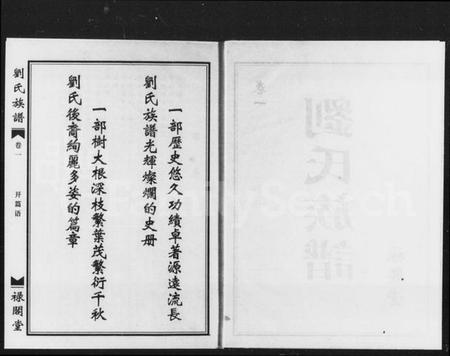 一部歷史悠久功績卓著源遠流長
劉氏族譜光輝燦爛的史册
一部樹大根深枝繁葉茂繁衍千秋
劉氏後裔絢麗多姿的篇章
劉氏族譜
卷一
开篇语
祿閣堂
卷一
劉氏族譜
FamilySearch